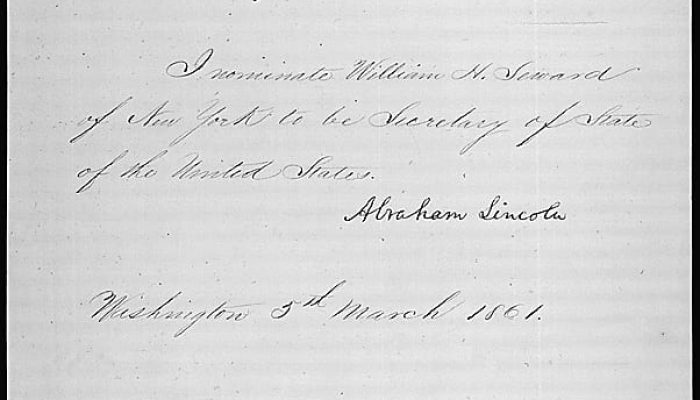 I nominate William H. Seward
of New York to be Secretary of State
of the United States.
Abraham Lincoln
Washington 5th March 1861.